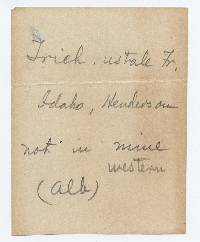 Trich. ustale Fr.
Idaho, Henderson
not in mine
western
(Alb)